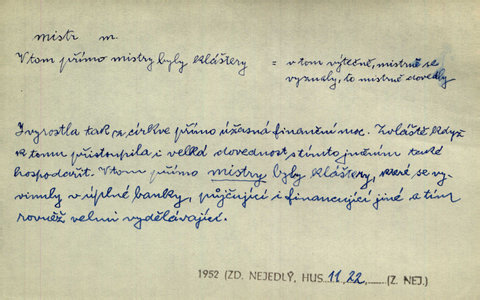 mistr m.
V tom přímo mistry byly kláštery = v tom výtečně, mistrně se
vyznaly, to mistrně dovedly
I vyrostla tak z církve přímo úžasná finanční moc. Zvláště když
k tomu přistoupila i velká dovednost s tímto jměním také
hospodařit. V tom přímo mistry byly kláštery, které se vy-
vinuly v úplné banky, půjčující i financující jiné a tím
rovněž velmi vydělávající.
1952 (ZD. NEJEDLÝ, HUS 11, 22 (Z. NEJ.)